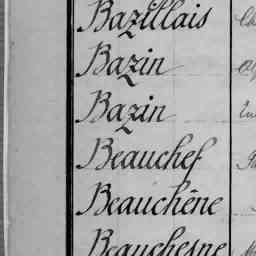 Bazillais
Bazin
Bazin
Beauchef
Beauchêne
Beauchesne